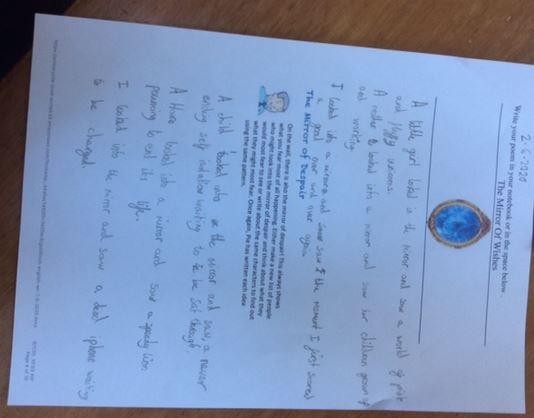 2-6-2020
Write your poem in your notebook or in the space below -
The Mirror Of Wishes
A little girl looked in the mirror and saw a world of pink
and fluffy unicorns.
A mother looked into a mirror and saw her children grown up
and working
I looked into a mirror and saw the moment I first scored
a goal over and over again
The Mirror of Despair
On the wall, there is also the mirror of despair! This always shows
what you fear most of all happening. Either make a new list of people
who might look into the mirror of despair and think about what they
would most fear to see or write about the same characters to find out
what they might most fear. Once again, Pie has written each idea
using the same pattern.
A child looked into the mirror and saw, a never
ending self isolation waiting to be sat through.
A Hare looked into a mirror and saw a speedy lion
planning to end its life.
I looked into the mirror and saw a dead iphone waiting
to be charged